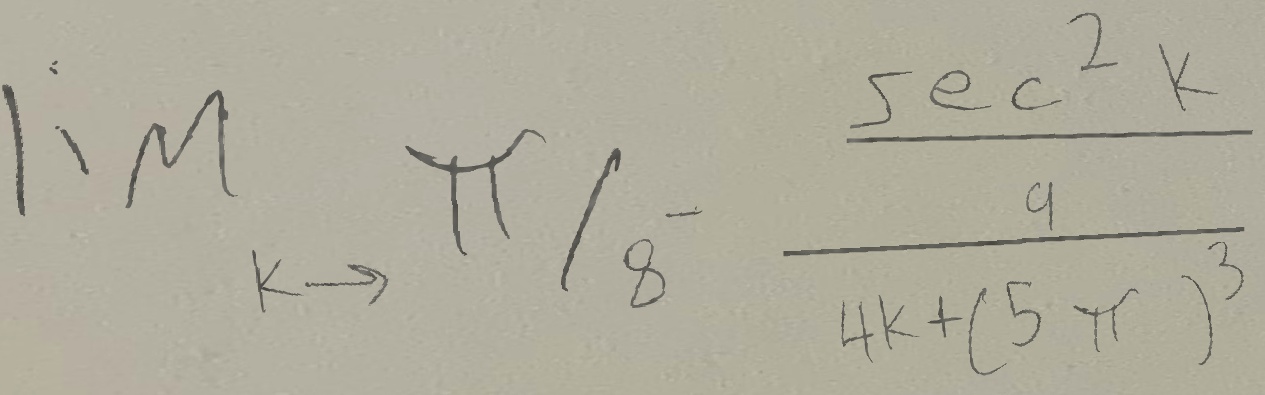 lim k→π/8⁻ sec² k / 9 / 4k+(5π)³